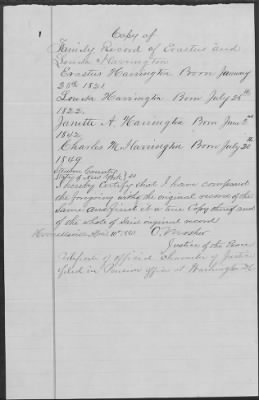 1
Copy of
Family Record of Erastus and
Louisa Harrington
Erastus Harrington Born January
25th 1821
Louisa Harrington Born July 26th
1822.
Janette A. Harrington Born June 2nd
1842
Charles M. Harrington Born July 20th
1849
Steuben County
State of New York } SS
I hereby Certify that I have compared
the foregoing with the original record of the
Same and find it a true Copy thereof and
of the whole of said original record
Hornellsville 10th
O. Mosher
Justice of the Peace
Certificate of official Character of Justice
filed in Pension office at Washington D.C.